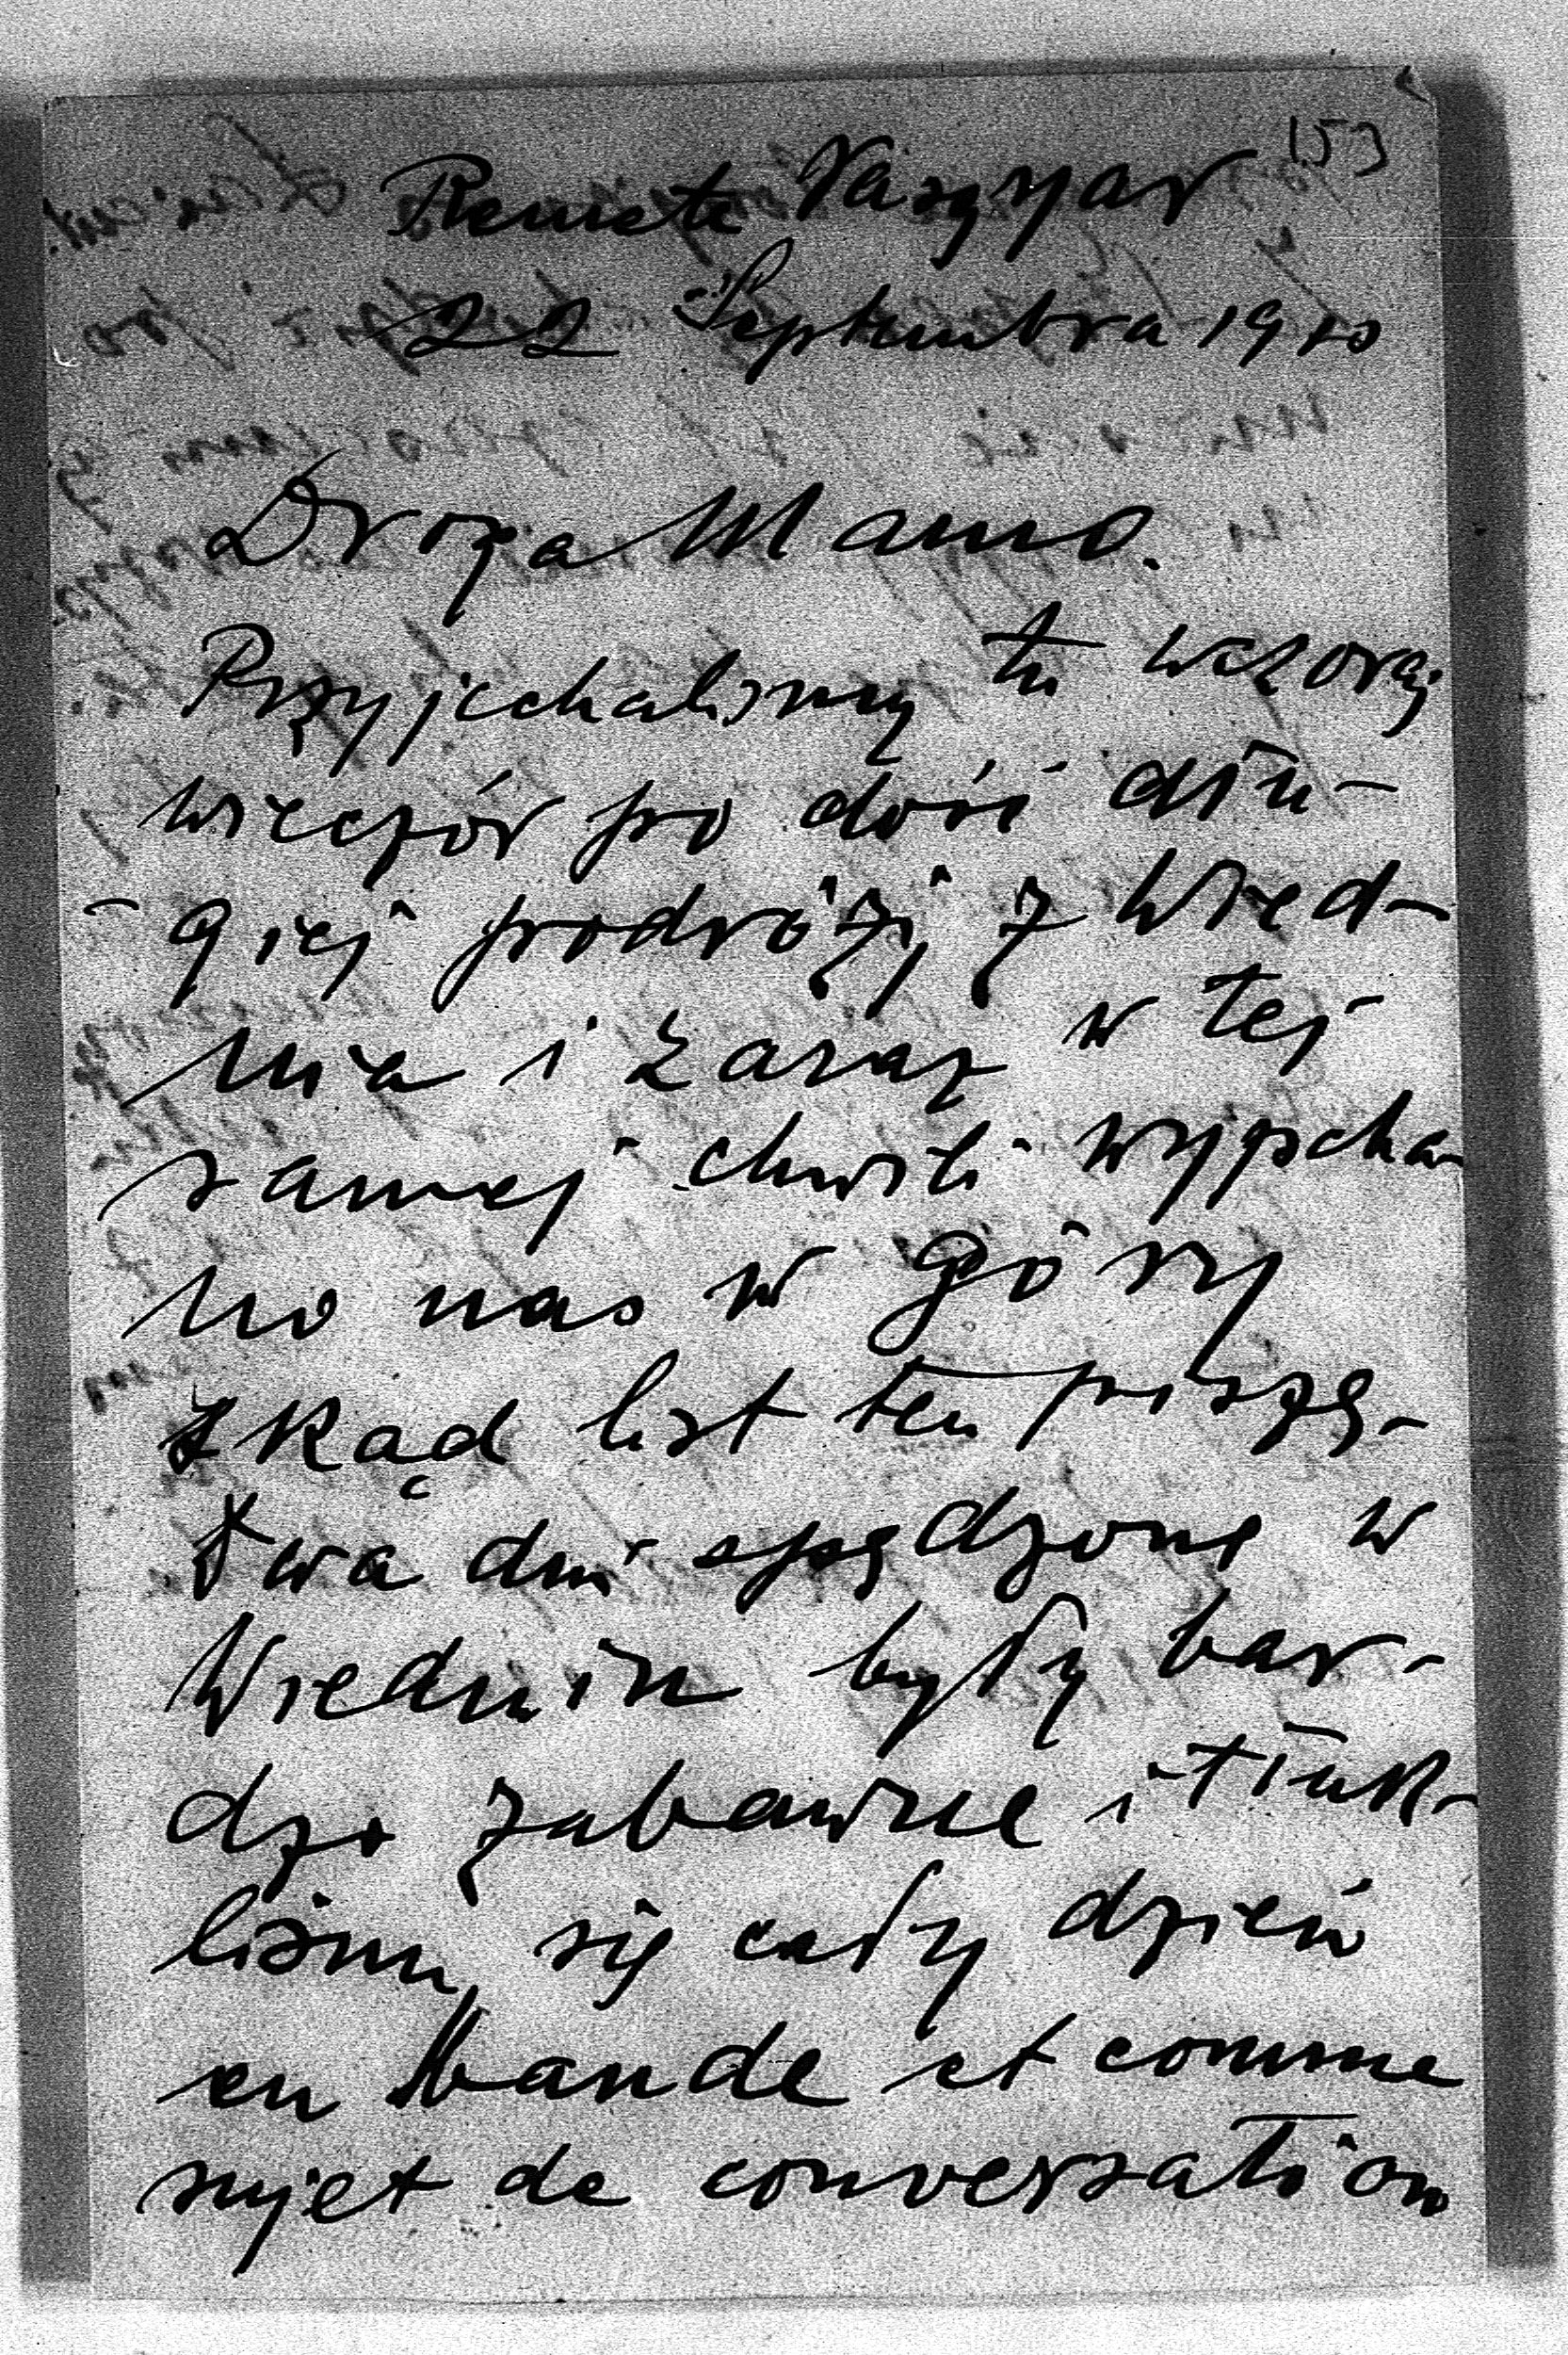 153
Remete Vaszyar
22 Septembra 1910
Droga Mamo.
Przyjechalismy tu wczoraj
wieczór po dość dłu-
giej podróży z Wied-
nia i zaraz w tej
samej chwili wyjecha-
no nas w góry
zkąd list ten piszę-
Dwa dni spędzone w
Wiedniu były bar-
dzo zabawne i tłuk-
liśmy się cały dzień
en bande et comme
sujet de conversation